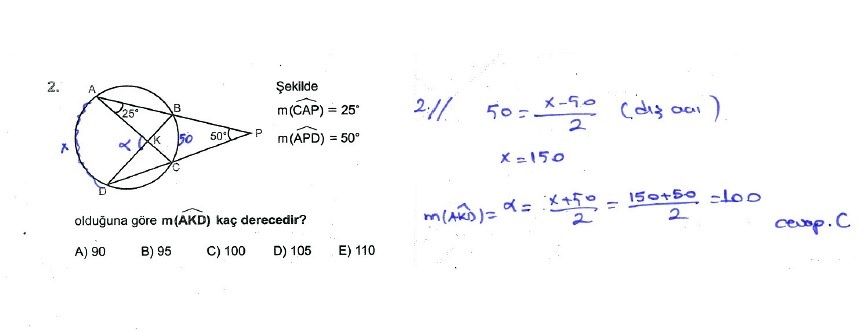 2.
A
B
25°
K
50
50°
P
α
x
C
D
Şekilde
m(CAP) = 25°
m(APD) = 50°
olduğuna göre m(AKD) kaç derecedir?
A) 90 B) 95 C) 100 D) 105 E) 110
2.// 50 = x-50 / 2 (dış açı)
x = 150
m(AKD) = α = x+50 / 2 = 150+50 / 2 = 100
cevap. C